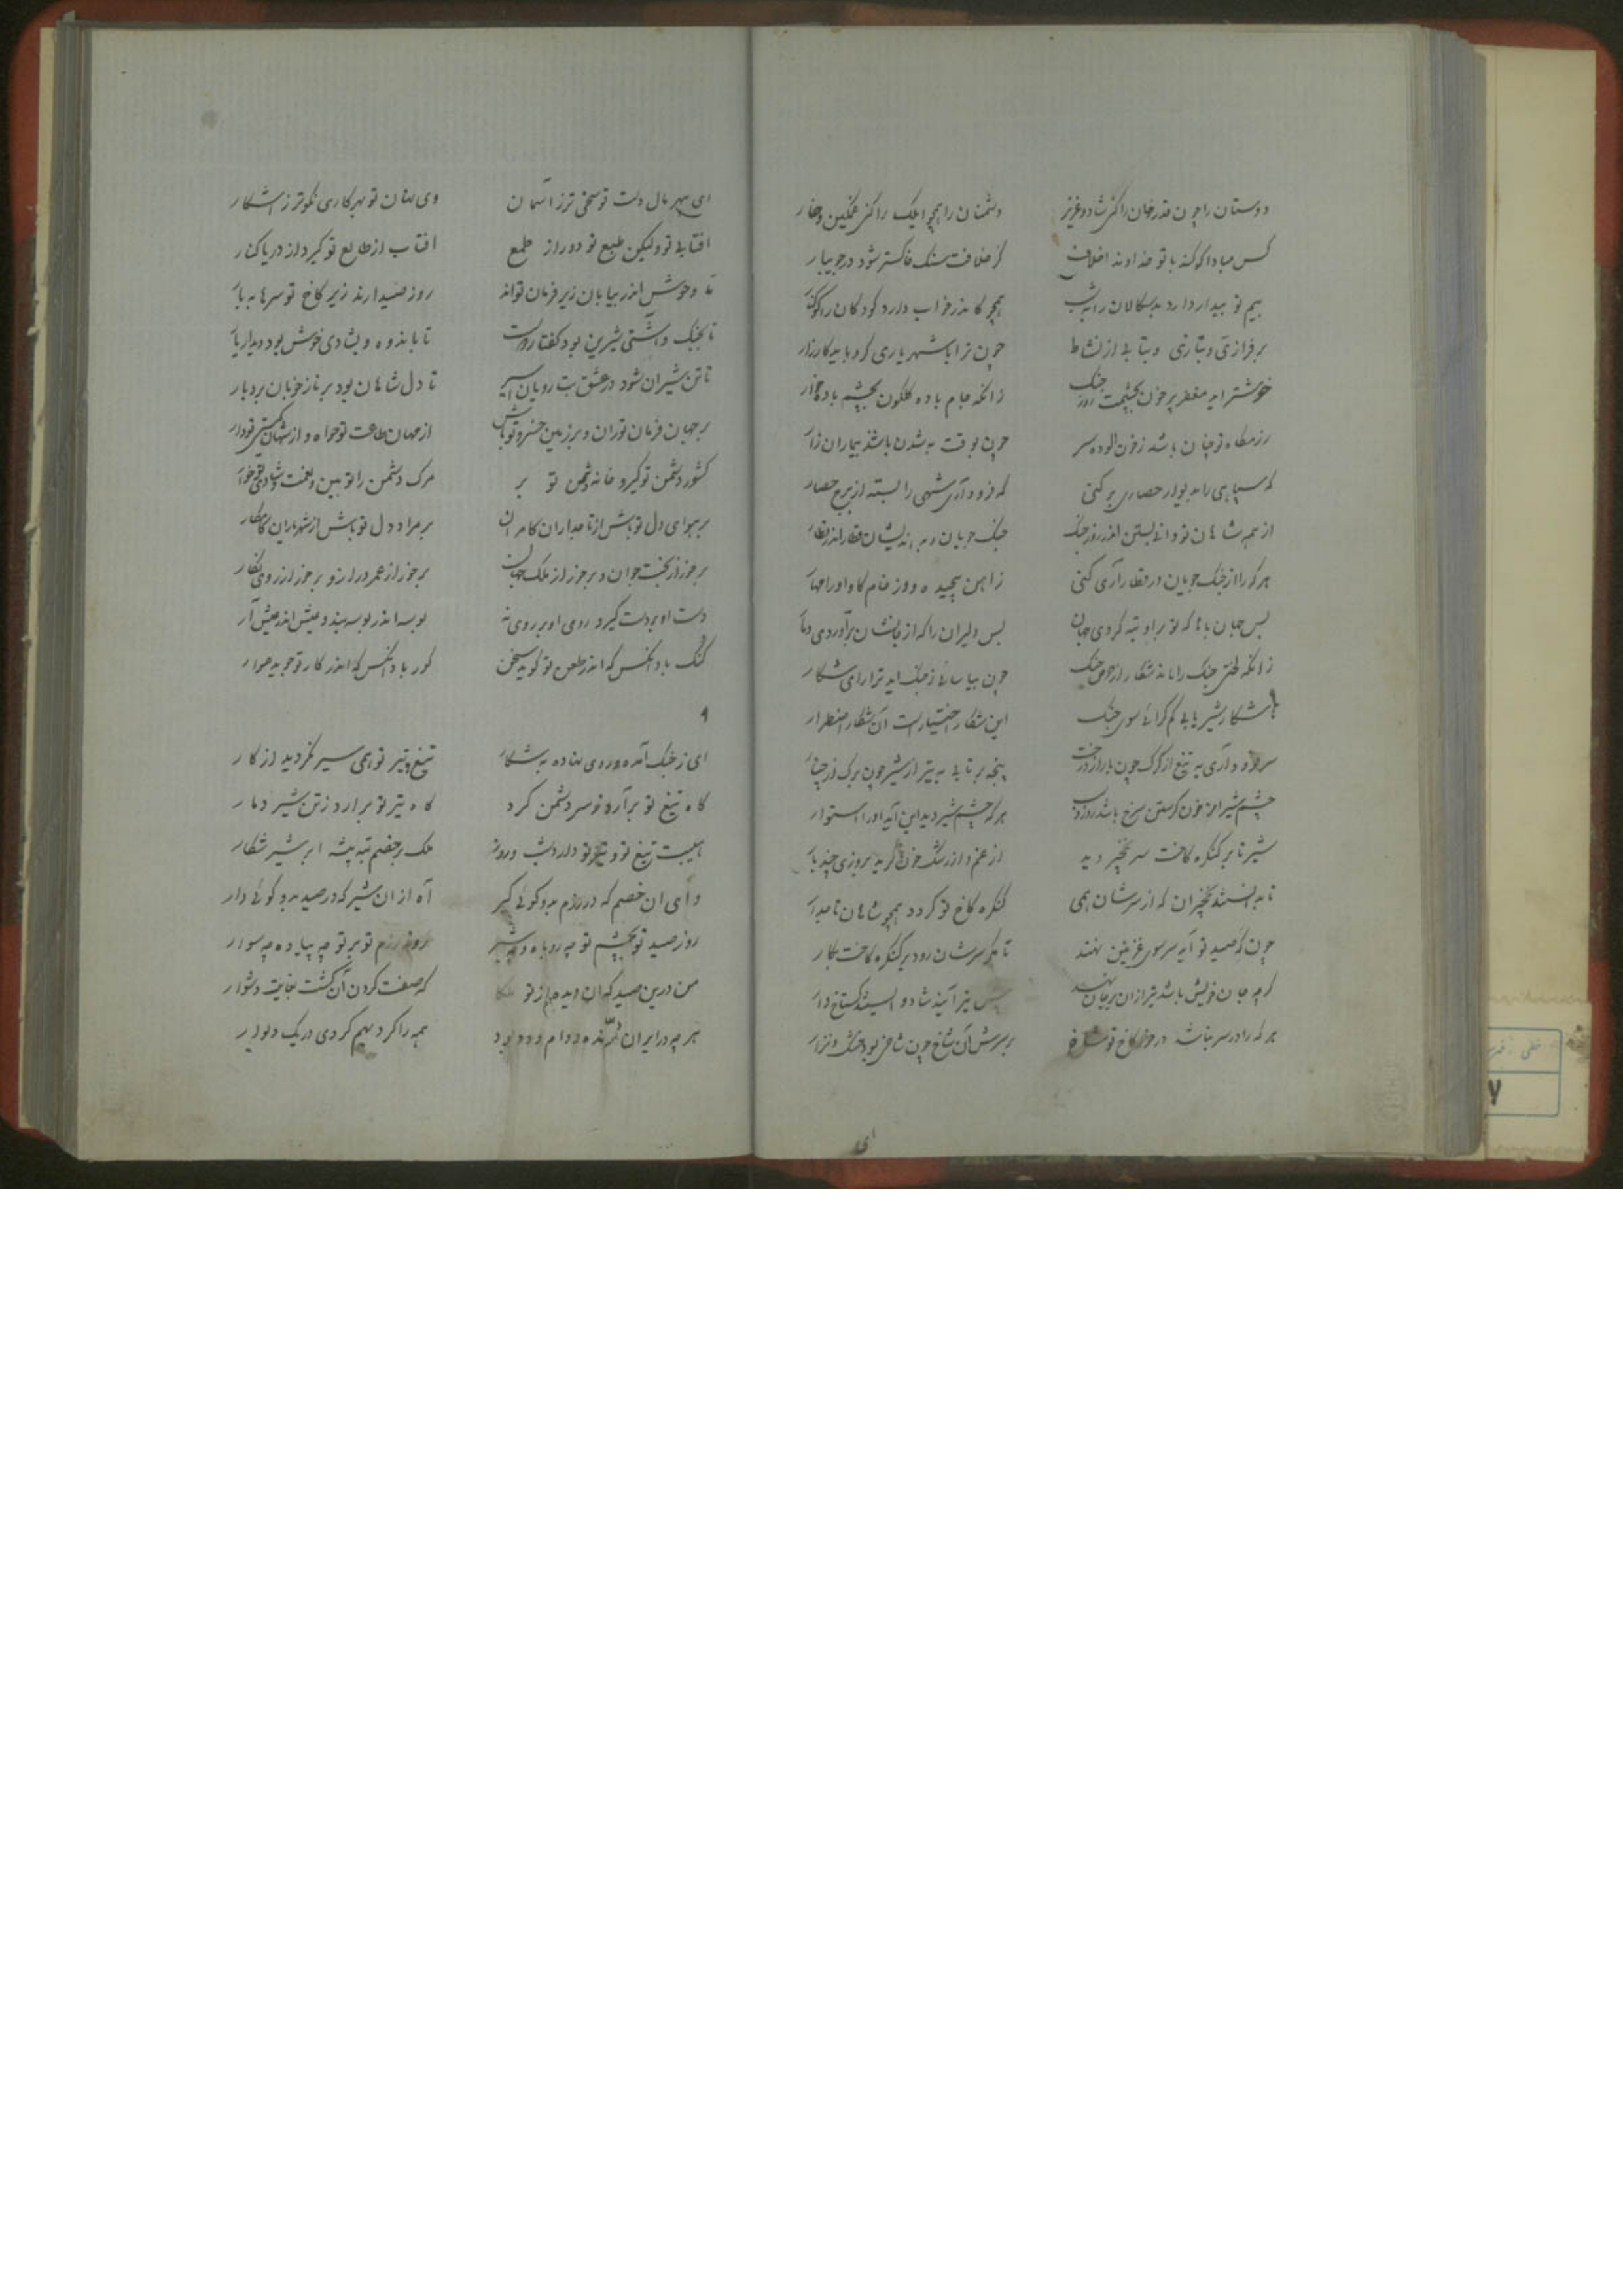 دوستان را چون قدرخان راکنی شاد و عزیز دشمنان را همچو ایلک راکنی غمگین و خوار
کس مبادا کو کند با تو خداوندا خلاف کز خلافت سنک خاکستر شود در جویبار
بیم تو بیدار دارد بدسکالان را بشب همچو کاندر خواب دارد کودکان را کوکنار
برفرازی و بتازی و بتابی از نشاط چون ترا با شهریاری کرد باید کارزار
خوشتر اید مغفر پر خون بچشمت روز جنک زانکه جام باده کلکون بچشم باده خوار
رزمکاه تو چنان باشد زخون الوده سر چون بوقت به شدن باشد بیماران زار
که سپاهی را بدیوار حصاری برکنی که فرود آری شهی را بسته از برج حصار
از همه شاهان تو دانی بستن اندر روز جنک جنک جویان و بداندیشان قطار اندر قطار
هر کرا از جنک جویان در قطار آری کنی زاهن پیچیده و وز خام کاو اورا مهار
بس جهان بانا که تو بر او تبه کردی جهان بس دلیران را که از جانشان برآوردی دمار
زانکه لختی جنک را ماند شکار از حرص جنک چون بیاسائی زجنک اید ترا رای شکار
با شکار شیر یابی کم کرائی سوی جنک این شکار اختیارست آن شکار اضطرار
سر فرود آری به تیغ از کرک چون بار از درخت پنجه بر تابی به تیر از شیر چون برک از چنار
چشم شیر از خون کرستن سرخ باشد روز و شب هر که چشم شیر دید این آید اورا استوار
شیر تا بر کنکره کاخت سر نخچیر دید از غم و از رشک خون کرید بروزی چند بار
تا بدانستند نخچیران که از سرشان همی کنکره کاخ تو کردد همچو شاهان تاجدار
چون که صید تو آید سر سوی غزنین نهند تا مکر سرشان رود بر کنکره کاخت بکار
کرچه جان خویش باشد تیر از ان بر جان نهند پیش تیر آیند شاد و ایستند کستاخ وار
هر که را در سر نباشد در خور کاخ تو شاخ بر سرش آن شاخ چون شاخی بود خشک و نزار
ای
ای بهر مال دست تو سخی تر ز اسمان وی نهان تو بهر کاری نکوتر ز اشکار
افتابی تو ولیکن طبع تو دور از طمع افتاب از طالع تو کیرد از دریا کنار
تا وحوش اندر بیابان زیر فرمان تواند روز صید ارند زیر کاخ تو سرها ببار
تا بجنک و آشتی شیرین بود کفتار دوست تا باندوه و بشادی خوش بود دیدار یار
تا تن شیران شود در عشق بت رویان اسیر تا دل شاهان بود بر ناز خوبان بردبار
بر جهان فرمان تو ران و بر زمین خسرو تو باش از جهان طاعت تو خواه و از شهان کیتی تو دار
کشور دشمن تو کیر و خانه دشمن تو بر مرک دشمن را تو بین و نعمت و شادی تو خوار
بر هوای دل تو باش از تاجداران کامران بر مراد دل تو باش از شهریاران کامکار
بر خور از بخت جوان و بر خور از ملک جهان بر خور از عمر دراز و بر خور از روی نکار
دست او بر دست کیر و روی او بر روی نه بوسه اندر بوسه بند و عیش اندر عیش آر
کنک باد آنکس که اندر طعن تو کوید سخن کور باد آنکس که اندر کار تو جوید عوار
۹
ای زجنک آمده و روی نهاده بشکار تیغ و تیر تو همی سیر نکردید از کار
کاه تیغ تو برآرد ز سر دشمن کرد کاه تیر تو برارد زتن شیر دمار
هیبت تیغ تو و تیر تو دارد شب و روز ملک بر خصم تبه بیشه ابر شیر شکار
وای ان خصم که در رزم بدو کوئی کیر آه از ان شیر که در صید بدو کوئی دار
روز صید تو بچشم تو چه روباه و چه شیر روز رزم تو بر تو چه پیاده چه سوار
من درین صید که ان دیده ام از تو ملکا که صفت کردن آن کشت بغایت دشوار
هر چه در ایران درنده و دام و دد بود همه را کرد بهم کردی در یک دیوار